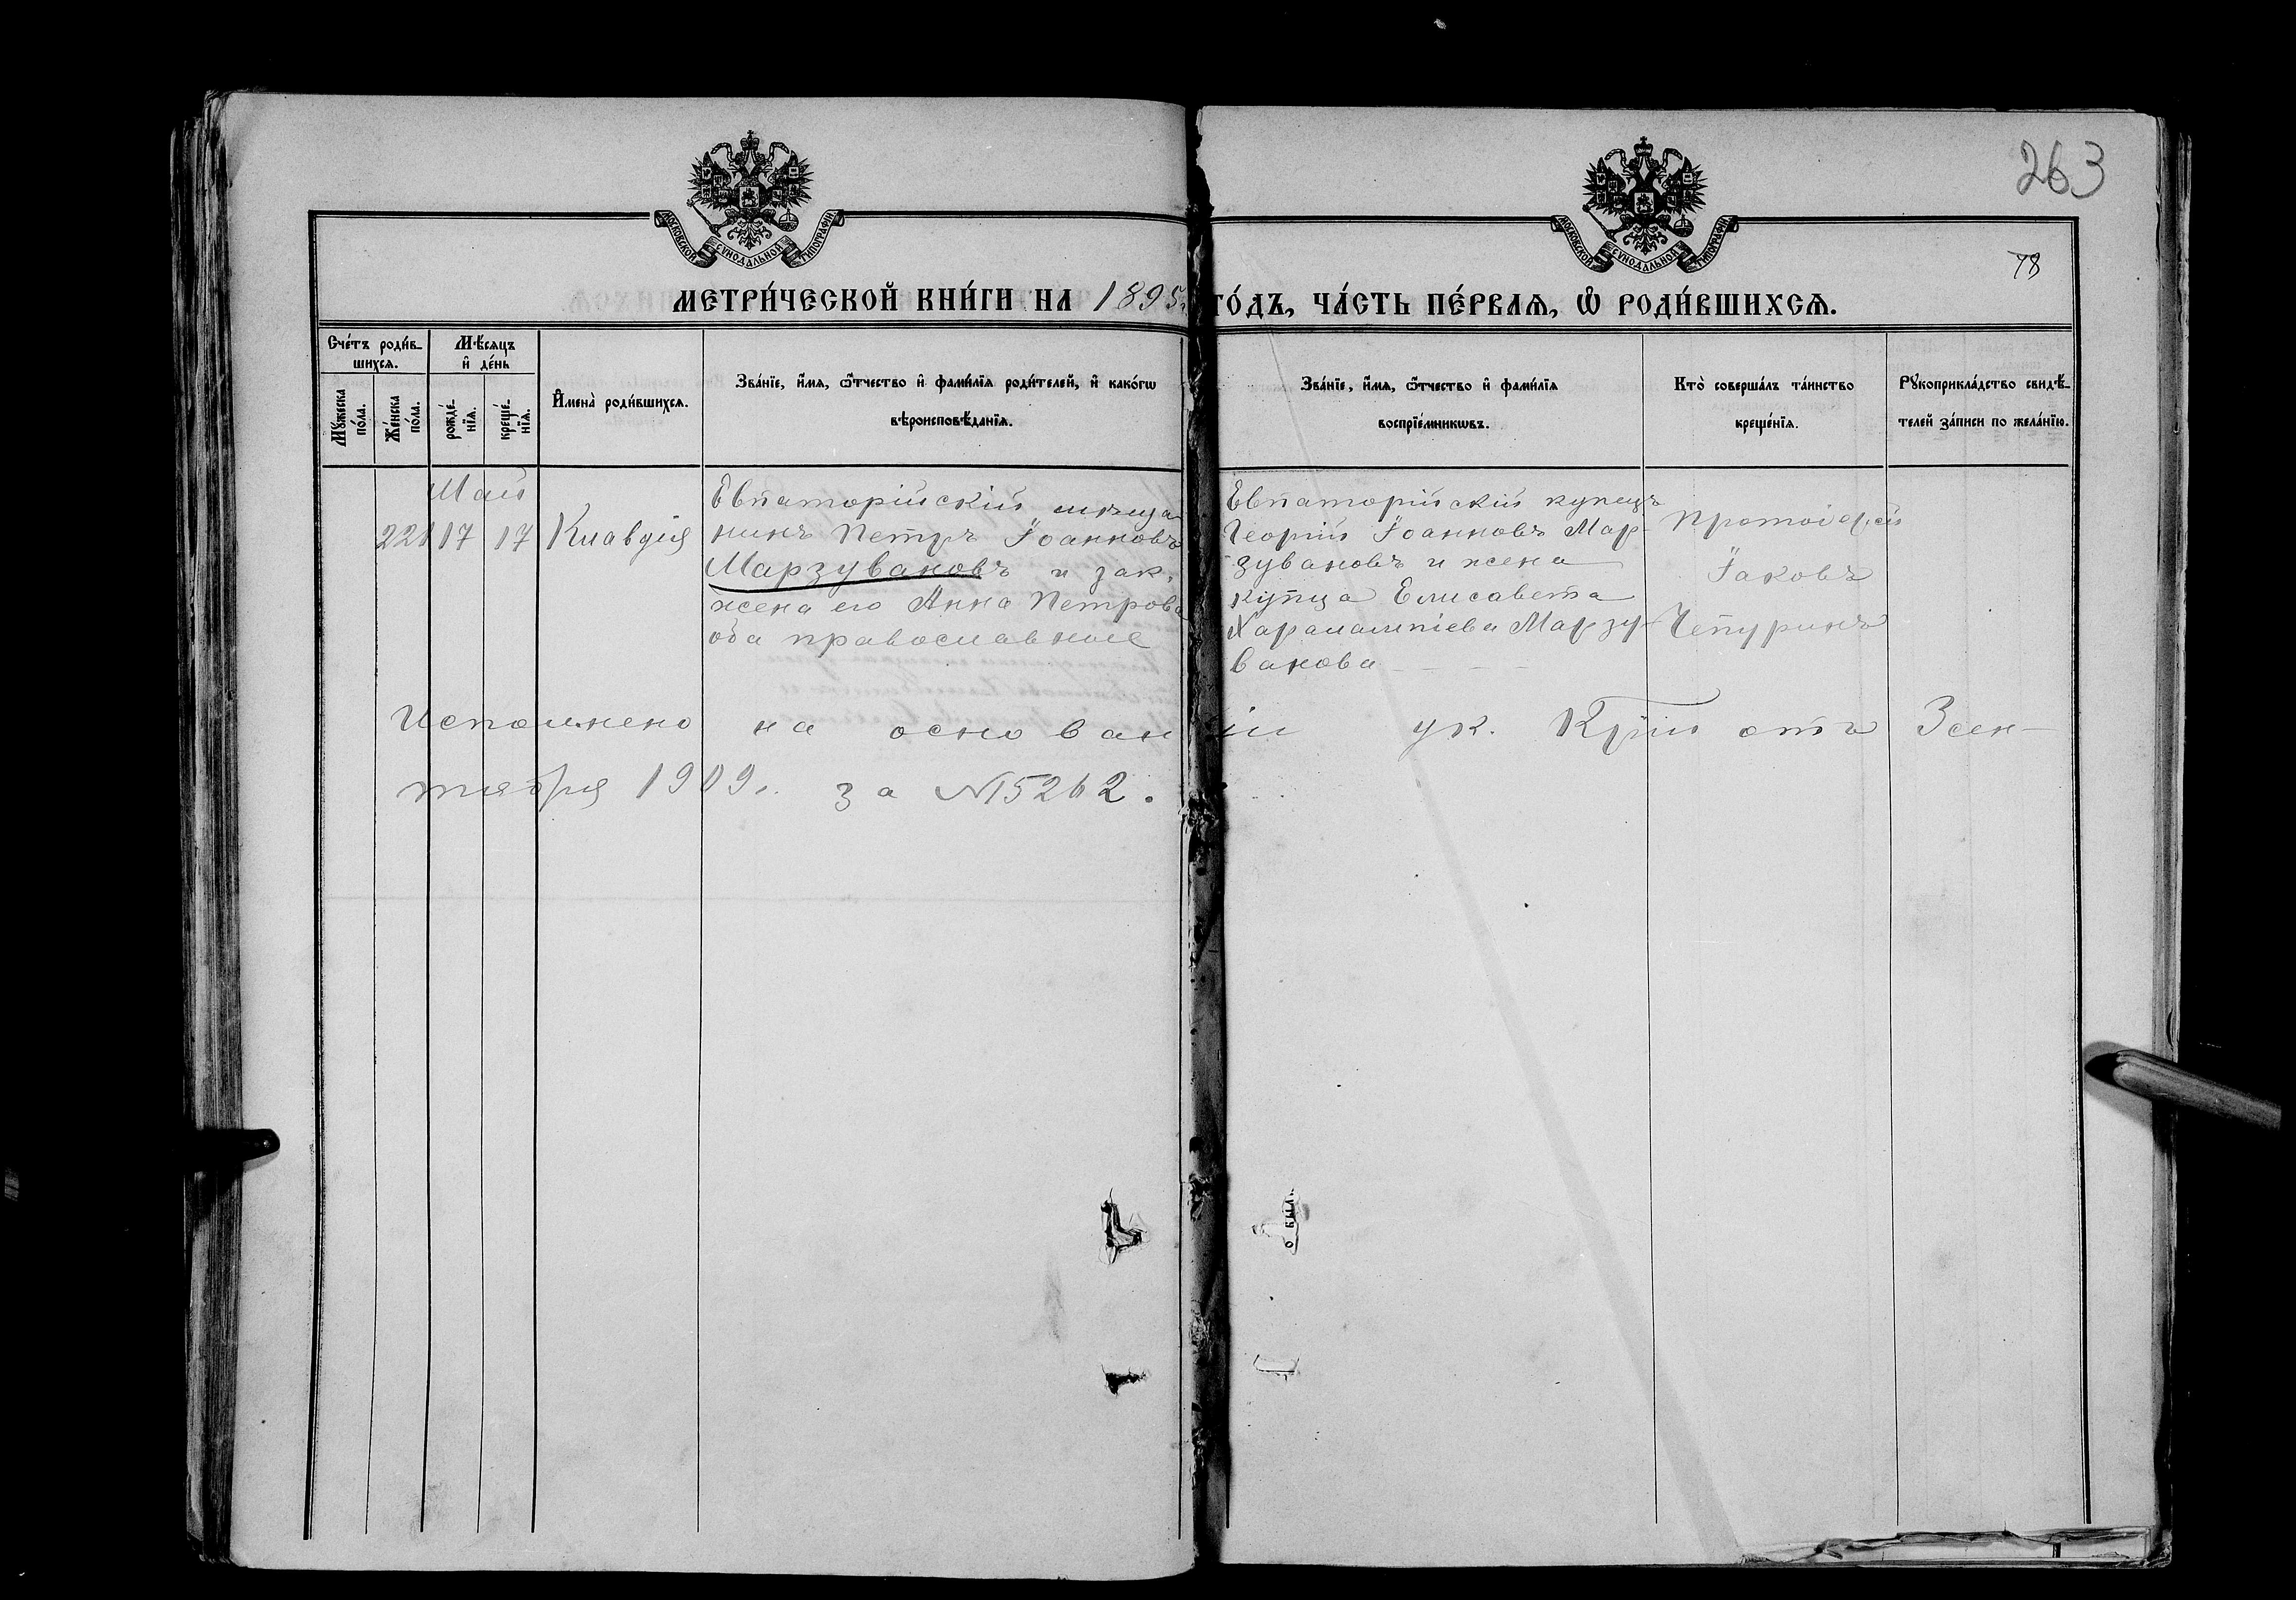 263
МОСКОВСКОЙ СѴНОДАЛЬНОЙ ТИПОГРАФІИ
МОСКОВСКОЙ СѴНОДАЛЬНОЙ ТИПОГРАФІИ
78
МЕТРИ́ЧЕСКОЙ КНИ́ГИ НА 1895 ГО́ДЪ, ЧА́СТЬ ПЕ́РВАѦ, Ѽ РОДИ́ВШИХСѦ.
Сче́тъ роди́в-
шихсѧ.
Мꙋ́жеска по́ла.
Же́нска по́ла.
Мѣ́сѧцъ
и҆ де́нь
рожде́-
нїѧ.
креще́-
нїѧ.
И҆мена̀ роди́вшихсѧ.
Зва́нїе, и҆́мѧ, ѻ҆́тчество и҆ фами́лїѧ роди́телей, и҆ како́гѡ
вѣроисповѣ́данїѧ.
Зва́нїе, и҆́мѧ, ѻ҆́тчество и҆ фами́лїѧ
воспрїе́мникѡвъ.
Кто̀ соверша́лъ та́инство
креще́нїѧ.
Рꙋкоприкла́дство свидѣ́-
телей за́писи по жела́нїю.
Май
221 17 17 Клавдія
Евпаторійскій мѣща-
нинъ Петръ Іоанновъ
Марзувановъ и зак.
жена его Анна Петрова
оба православные
Евпаторійскій купецъ
Георгій Іоанновъ Мар-
зувановъ и жена
купца Елисавета
Харалампіева Марзу-
ванова
Протоіерей
Іаковъ
Чепуринъ
Исполнено на основаніи ук. отъ 3 сен-
тября 1909 г. за №5262.